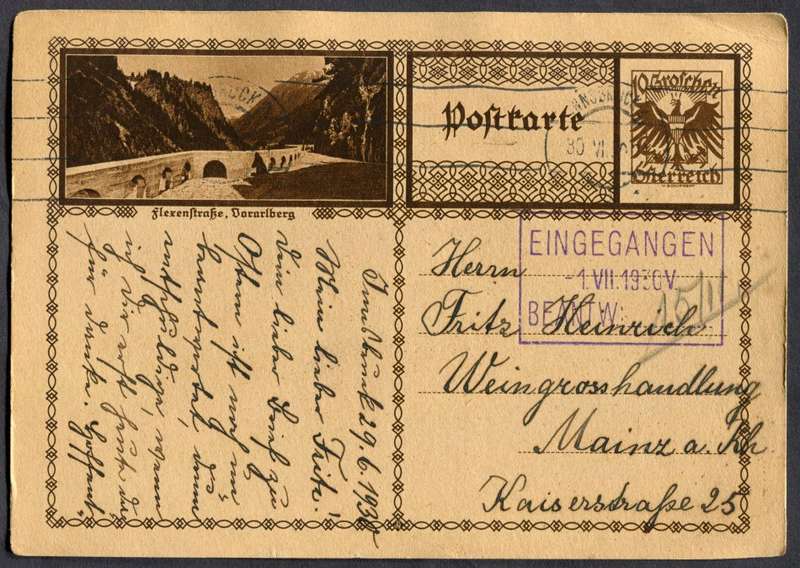 Flexenstraße, Vorarlberg
Postkarte
10 Groschen
Österreich
INNSBRUCK
30 VI
EINGEGANGEN
-1.VII.1930V
BEANTW:
15/II
Herrn
Fritz Heinrich
Weingrosshandlung
Mainz a. Rh
Kaiserstraße 25
Innsbruck 29.6.1930
Mein lieber Fritz!
Dein lieber Brief zu
Ostern ist noch un
beantwortet, dann
entschuldige, wenn
ich Dir erst heute da
für danke.